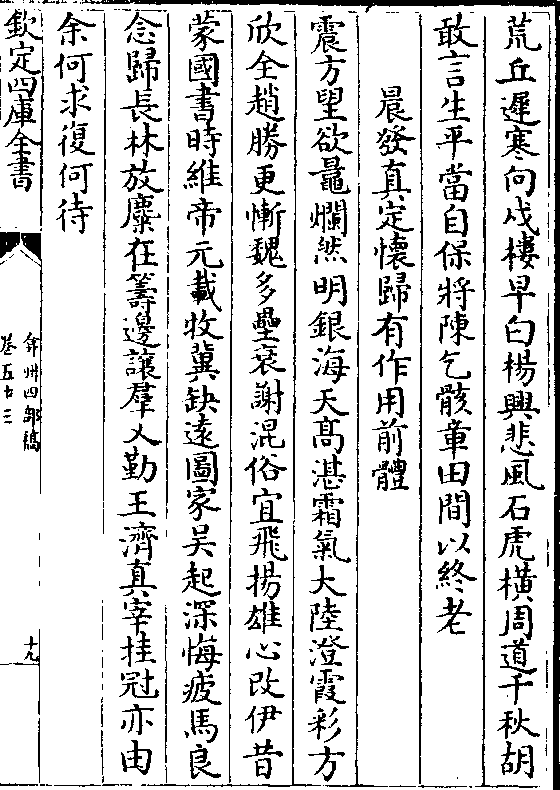 荒丘遲寒向戍樓早白楊興悲風石虎橫周道千秋胡
敢言生平當自保將陳乞骸章田間以終老
晨發真定懷歸有作用前體
震方望欲鼂爛然明銀海天高湛霜氣大陸澄霞彩方
欣全趙勝更慚魏多壘衰謝混俗宜飛揚雄心改伊昔
蒙國書時維帝元載牧冀缺遠圖家吳起深悔疲馬良
念歸長林放麋在籌邊讓羣乂勤王濟真宰挂冠亦由
余何求復何待
欽定四庫全書
弇州四部稿
卷五十三
十九